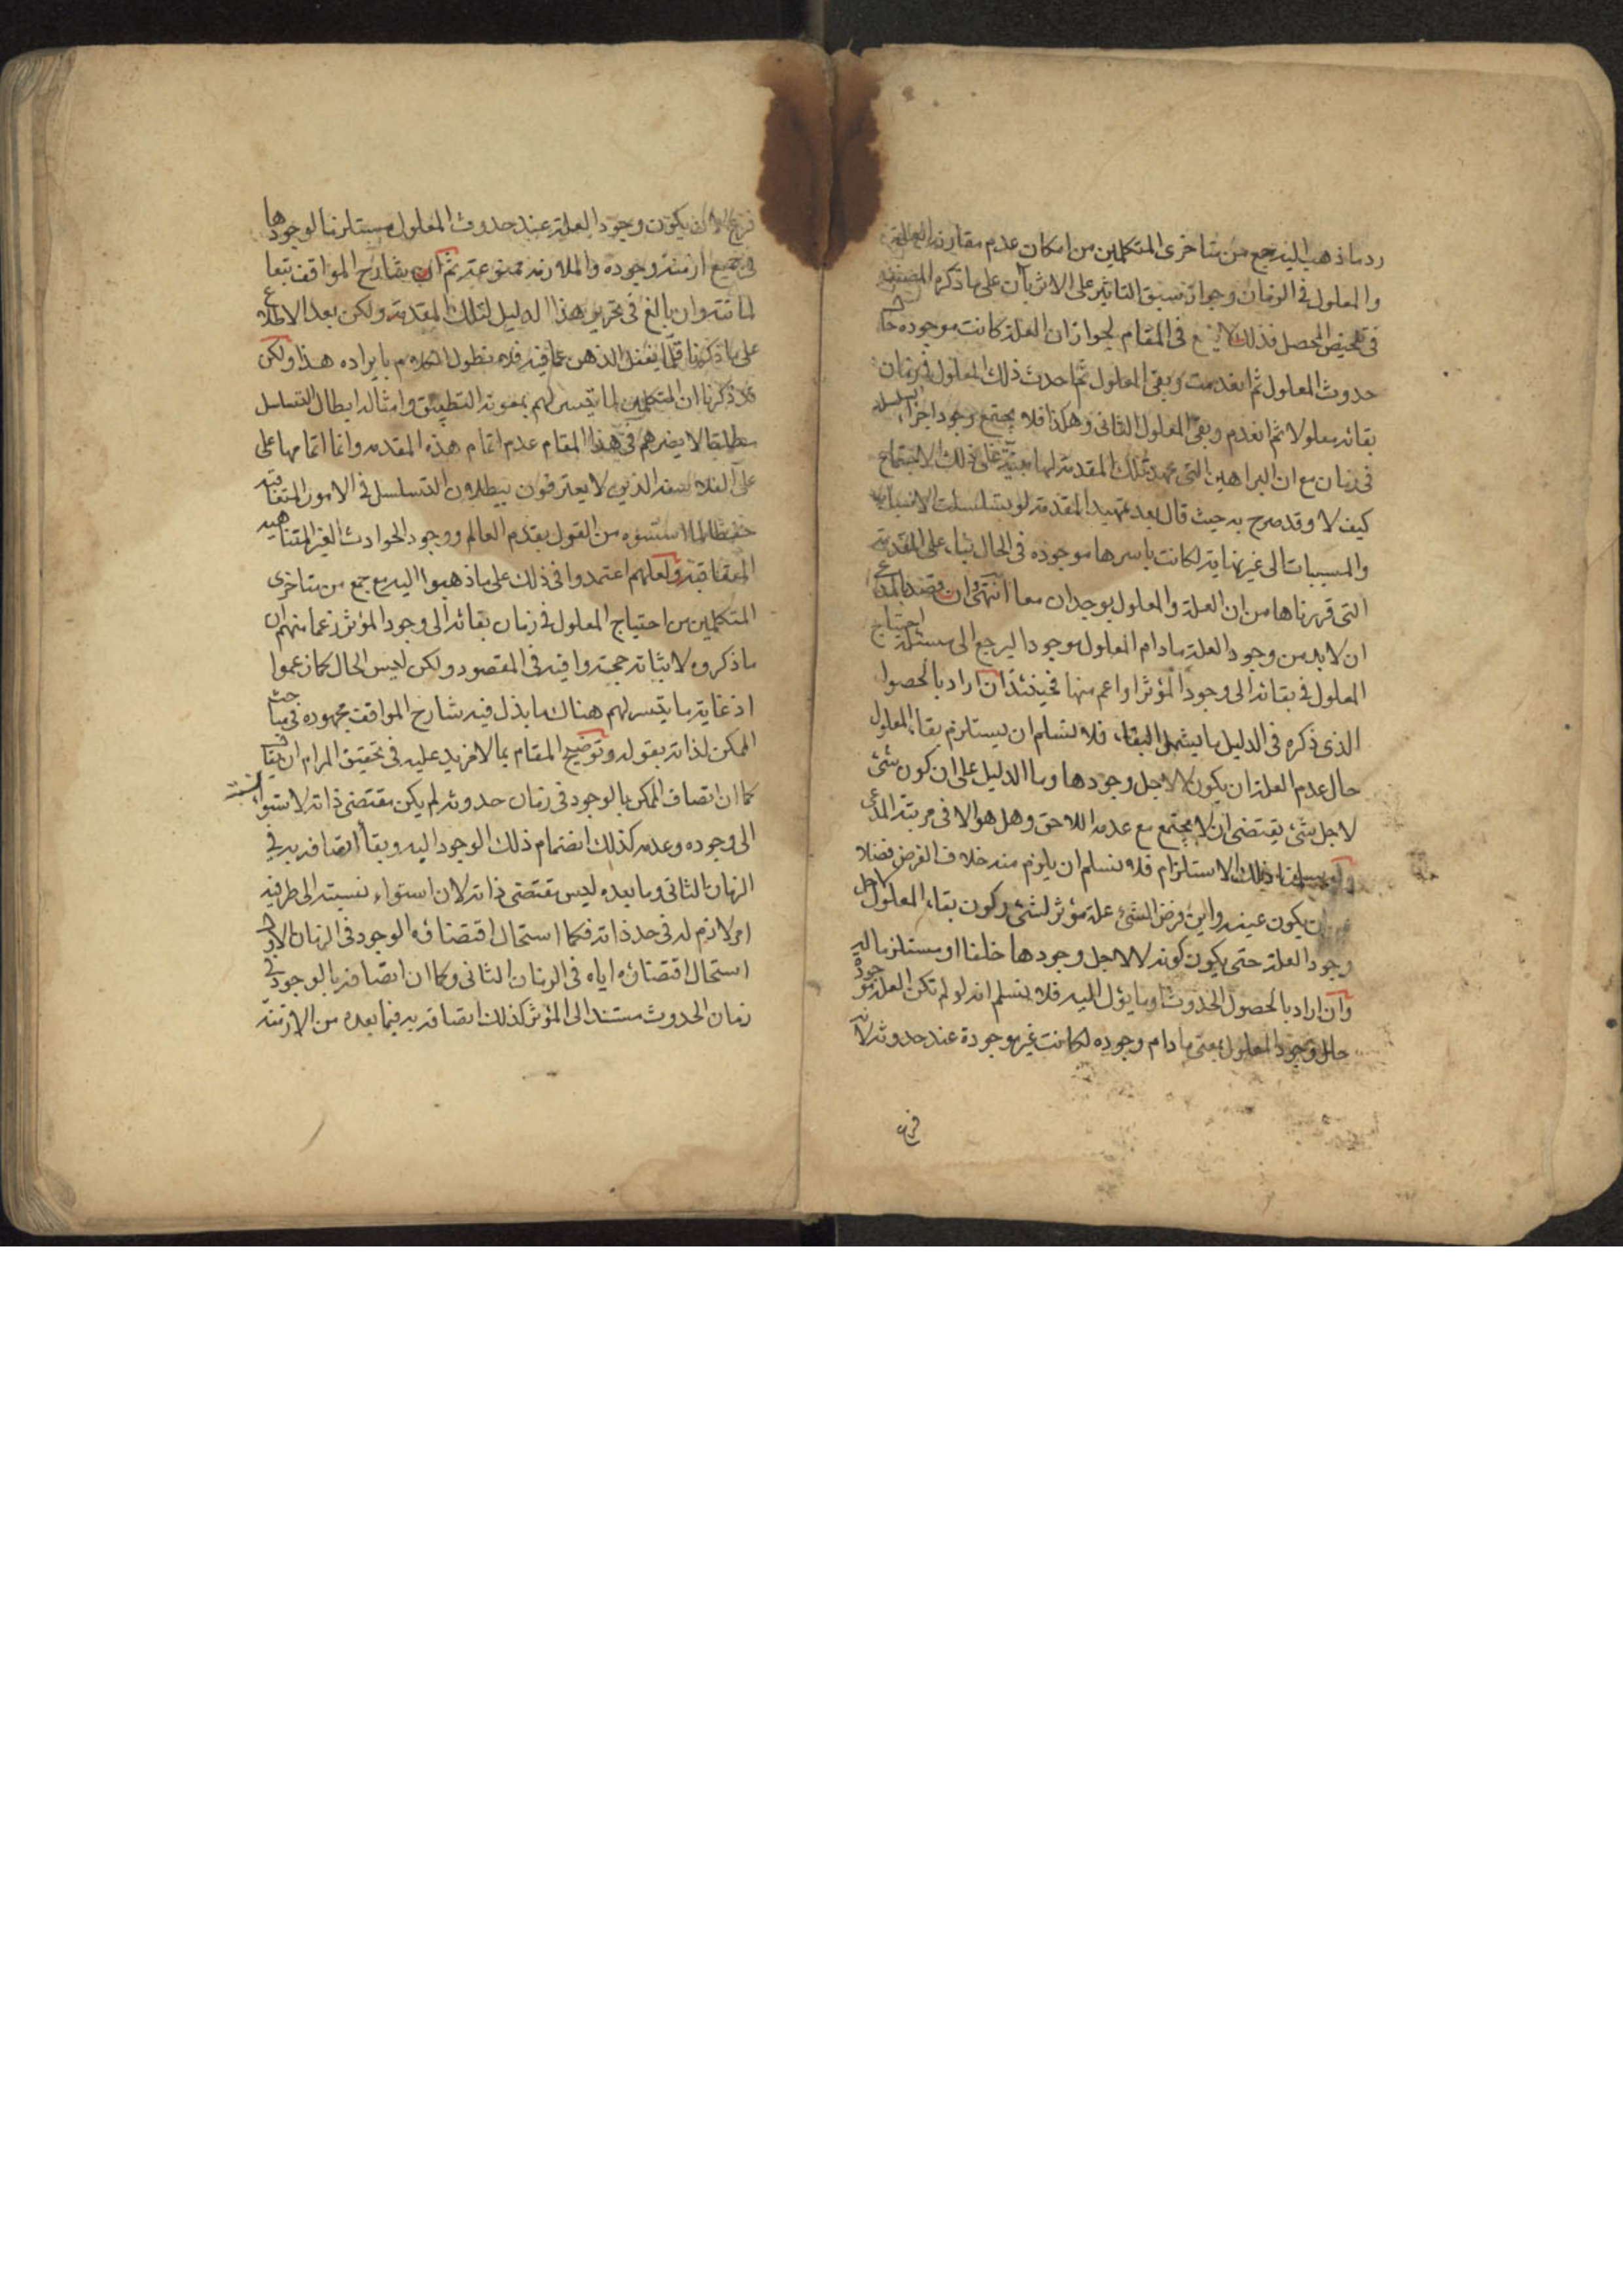 رد ما ذهب اليه جمع من متاخرى المتكلمين من امكان عدم مقارنة العلة
والمعلول فى الزمان وجواز سبق التاثير على الاثر بآن على ما ذكره المصنف
فى تلخيص المحصل فذلك لا ينفع فى المقام لجواز ان العلة كانت موجوده حال
حدوث المعلول ثم انعدمت وبقى المعلول ثم احدث ذلك المعلول فى زمان
بقائه معلولا ثم انعدم وبقى المعلول الثانى وهكذا فلا يجتمع وجود اجزاء السلسلة
فى زمان مع ان البراهين التى مهدت تلك المقدمة لها مبنية على ذلك الاجتماع
كيف لا وقد صرح به حيث قال بعد تمهيد المقدمة لو تسلسلت الاسباب
والمسببات الى غير نهاية لكانت باسرها موجوده فى الحال بناء على المقدمة
التى قررناها من ان العلة والمعلول يوجدان معا انتهى وان قصد بالمدعى
ان لا بد من وجود العلة ما دام المعلول موجودا ليرجع الى مسئلة احتياج
المعلول فى بقائه الى وجود المؤثر او اعم منها فحينئذ ان اراد بالحصول
الذى ذكره فى الدليل ما يشمل البقاء فلا نسلم ان يستلزم بقاء المعلول
حال عدم العلة ان يكون لا لاجل وجودها وما الدليل على ان كون شئ
لاجل شئ يقتضى ان لا يجتمع مع عدمه اللاحق وهل هو الا فى مرتبة المدعى
ولو سلمنا ذلك الاستلزام فلا نسلم ان يلزم منه خلاف الفرض فضلا
ان يكون عينه واين فرض الشئ علة مؤثر لشئ وكون بقاء المعلول لاجل
وجود العلة حتى يكون كونه لا لاجل وجودها خلفا او مستلزما له
وان اراد بالحصول الحدوث او ما يؤل اليه فلا نسلم انه لو لم تكن العلة موجودة
حال وجود المعلول بمعنى ما دام وجوده لكانت غير موجودة عند حدوثه لانه
فرع
فرع ان يكون وجود العلة عند حدوث المعلول مستلزما لوجودها
فى جميع ازمنة وجوده والملازمة ممنوعة ثم ان شارح المواقف تبعا
لماتنه وان بالغ فى تحرير هذا الدليل لتلك المقدمة ولكن بعد الاطلاع
على ما ذكرنا قلما يغفل الذهن عما فيه فلا نطول الكلام بايراده هذا ولكن
قد ذكرنا ان المتكلمين لما تيسر لهم بمعونة التطبيق وامثاله ابطال التسلسل
مطلقا لا يضرهم فى هذا المقام عدم اتمام هذه المقدمه وانما اتمامها على
على الفلاسفه الذين لا يعترفون ببطلان التسلسل فى الامور المتعاقبه
حفظا لما اسسوه من القول بقدم العالم ووجود الحوادث الغير المتناهيه
المتعاقبة ولعلهم اعتمدوا فى ذلك على ما ذهبوا اليه مع جمع من متاخرى
المتكلمين من احتياج المعلول فى زمان بقائه الى وجود المؤثر زعما منهم ان
ما ذكروه لاثباته حجة وافيه فى المقصود ولكن ليس الحال كما زعموا
اذ غاية ما تيسر لهم هناك ما بذل فيه شارح المواقف مجهوده فى مباحث
الممكن لذاته بقوله وتوضيح المقام بما لا مزيد عليه فى تحقيق المرام ان يقال
كما ان اتصاف الممكن بالوجود فى زمان حدوثه لم يكن مقتضى ذاته لاستواء نسبته
الى وجوده وعدمه كذلك انضمام ذلك الوجود اليه وبقاء اتصافه به فى
الزمان الثانى وما بعده ليس مقتضى ذاته لان استواء نسبته الى طرفيه
امر لازم له فى حد ذاته فكما استحال اقتضاؤه الوجود فى الزمان الاول
استحال اقتضاؤه اياه فى الزمان الثانى وكما ان اتصافه بالوجود فى
زمان الحدوث مستند الى المؤثر كذلك اتصافه به فيما بعده من الازمنة